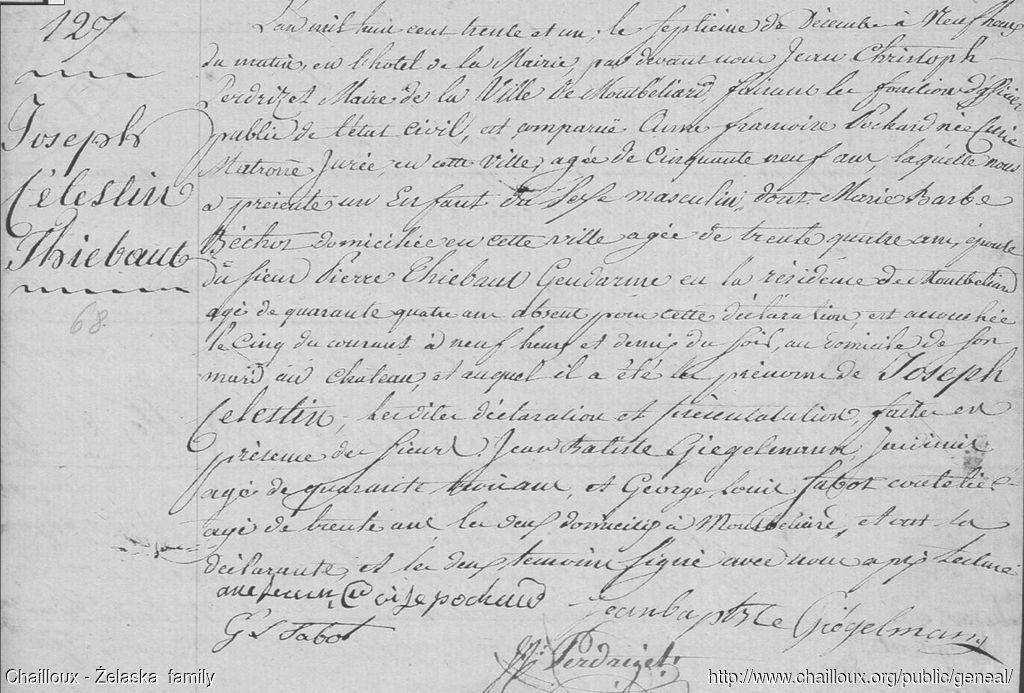 127
Joseph
Célestin
Thiebaut
68.
L'an mil huit cent trente et un, le septième de Décembre à Neuf heures
du matin, en l'hôtel de la Mairie par devant nous Jean Christoph
Perdrizet Maire de la Ville de Montbéliard faisant les fonctions d'officier
public de l'état civil, est comparuë Anne francoise Pochard née Curie
Matrone Jurée, en cette ville, agée de Cinquante neuf ans, laquelle nous
a présenté un Enfant du Sexe masculin, dont Marie Barbe
Béchot domiciliée en cette ville agée de trente quatre ans, épouse
du sieur Pierre Thiebaut Gendarme en la résidence de Montbéliard
agé de quarante quatre ans absent pour cette déclaration, est accouchée
le Cinq du courant à neuf heures et demie du soir, au domicile de son
mari, au chateau, et auquel il a été les prénoms de Joseph
Celestin, Lesdites déclaration et présentatation, faites en
présence des sieurs Jean Batiste Giegelmann
agé de quarante trois ans, et George Louis Sabot coutelier
agé de trente ans les deux domiciliés à Montbéliard, et ont la
déclarante et les deux temoins signé avec nous après lecture
pochard
jean baptiste Giégelmann
G L Sabot
Perdrizet
Chailloux - Żelaska family
http://www.chailloux.org/public/geneal/